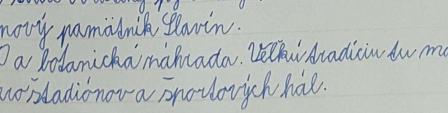 nový pamätník Slavín.
a botanická záhrada. Veľkú tradíciu tu m
štadiónov a športových hál.